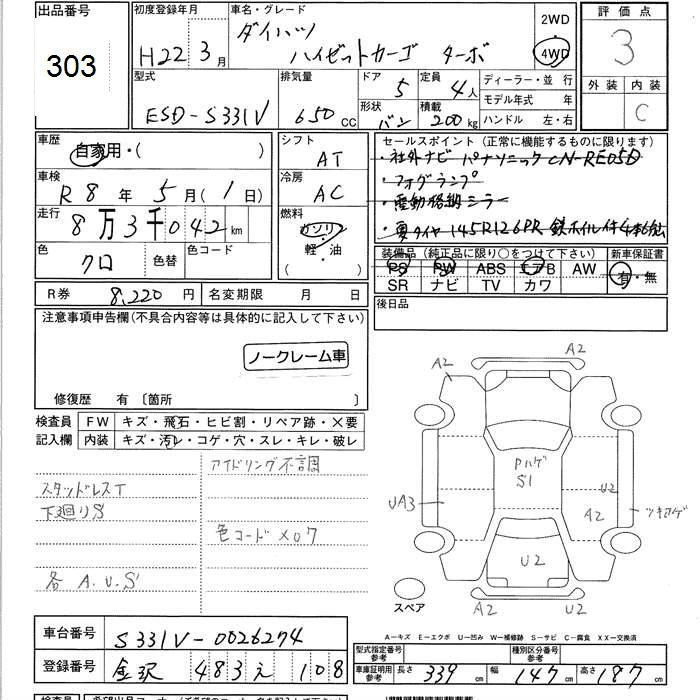 出品番号
303
初度登録年月
H22年3月
車名・グレード
ダイハツ
ハイゼットカーゴ ターボ
2WD
4WD
評価点
3
外装 内装
C
型式
EBD-S331V
排気量
650 CC
ドア
5
定員
4人
形状
バン
積載
200kg
ディーラー・並行
モデル年式 年
ハンドル 左・右
車歴
自家用・( )
シフト
AT
車検
R8年5月(1日)
冷房
AC
走行
8万3千042km
燃料
ガソリン
軽・油
色
クロ
色替
色コード
R券 8,220円
名変期限 月 日
セールスポイント(正常に機能するものに限ります)
・社外ナビ パナソニック CN-RE05D
・フォグランプ
・電動格納ミラー
・夏タイヤ 145R126PR 鉄ホイル付4本積
装備品(純正品に限り○をつけて下さい)
新車保証書
PS PW ABS エアB AW
SR ナビ TV カワ
有・無
後日品
注意事項申告欄(不具合内容等は具体的に記入して下さい)
ノークレーム車
修復歴 有〔箇所 〕
検査員
記入欄
FW キズ・飛石・ヒビ割・リペア跡・×要
内装 キズ・汚レ・コゲ・穴・スレ・キレ・破レ
アイドリング不調
スタッドレスT
下廻りS
色コード X07
各 A.U.S
A2
A2
PハゲS1
UA3
U2
A2
ツキアゲ
U2
A2
U2
スペア
A-キズ E-エクボ U-凹み W-補修跡 S-サビ C-腐食 XX-交換済
車台番号
S331V-0026274
登録番号
金沢 483え 108
型式指定番号
参考
種別区分番号
参考
車庫証明用
参考
長さ 339 cm 幅 147 cm 高さ 187 cm